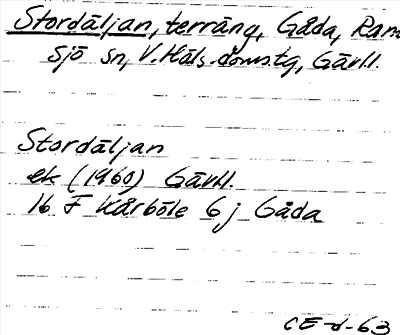 Stordäljan, terräng, Gåda, Ram
sjö sn, V. Häls. doms.tg, Gävl l.
Stordäljan
ek (1960) Gävl l.
16 F Kårböle 6 j Gåda
CE -63